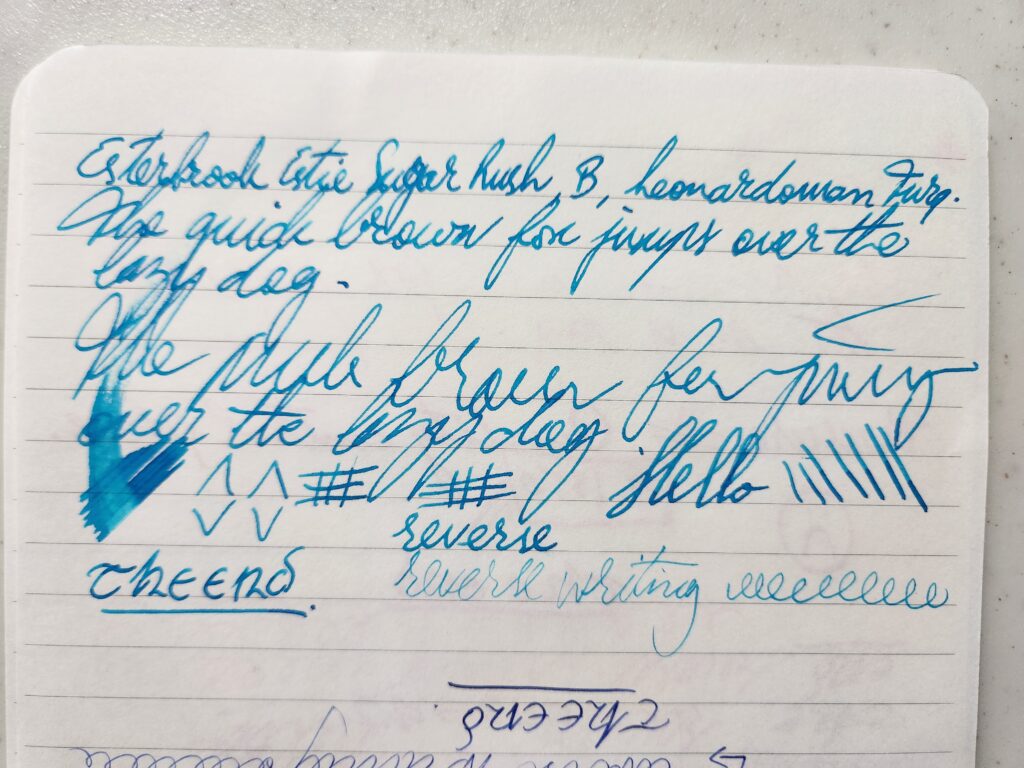 Esterbrook Estie Sugar Rush, B, Leonardoman Turq.
The quick brown fox jumps over the
lazy dog.
The quick brown fox jumps
over the lazy dog. Hello
reverse
The End. reverse writing eeeeeeeee
The End